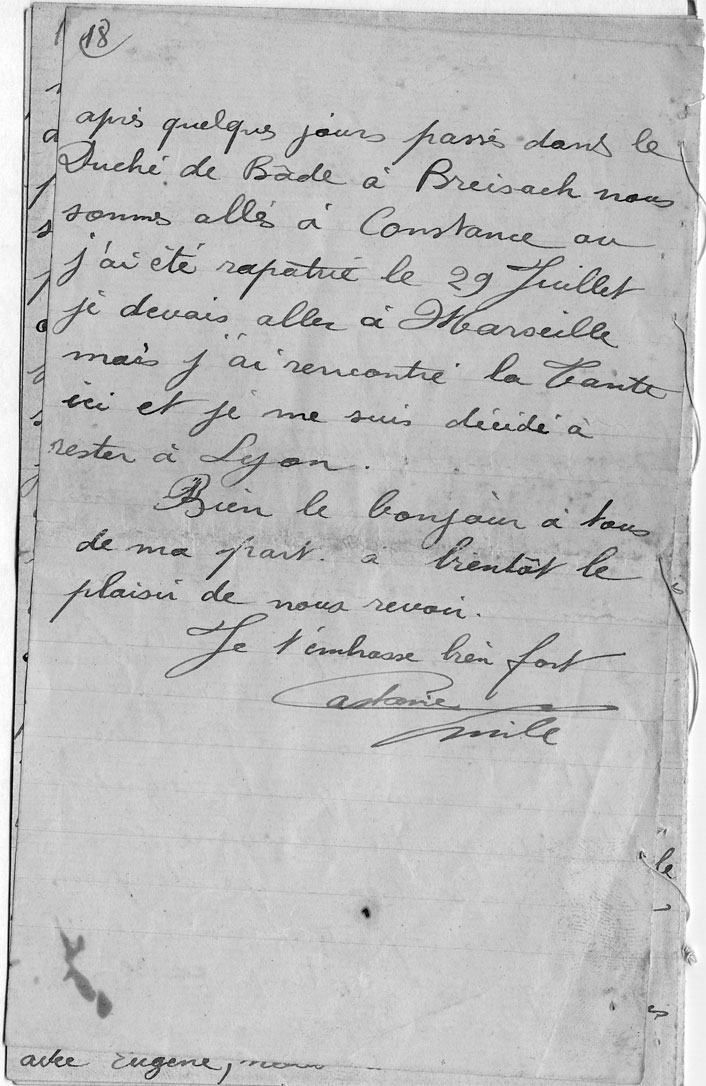 18
après quelques jours passés dans le
Duché de Bade à Breisach nous
sommes allés à Constance ou
j'ai été rapatrié le 29 Juillet
je devais aller à Marseille
mais j'ai rencontré la tante
ici et je me suis décidé à
rester à Lyon.
Bien le bonjour à tous
de ma part. a bientôt le
plaisir de nous revoir.
Je t'embrasse bien fort
Emile
le
avec Eugene,